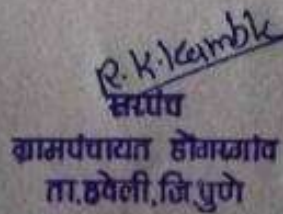 R.K.Kamble
सरपंच
ग्रामपंचायत डोंगरगांव
ता.हवेली,जि.पुणे